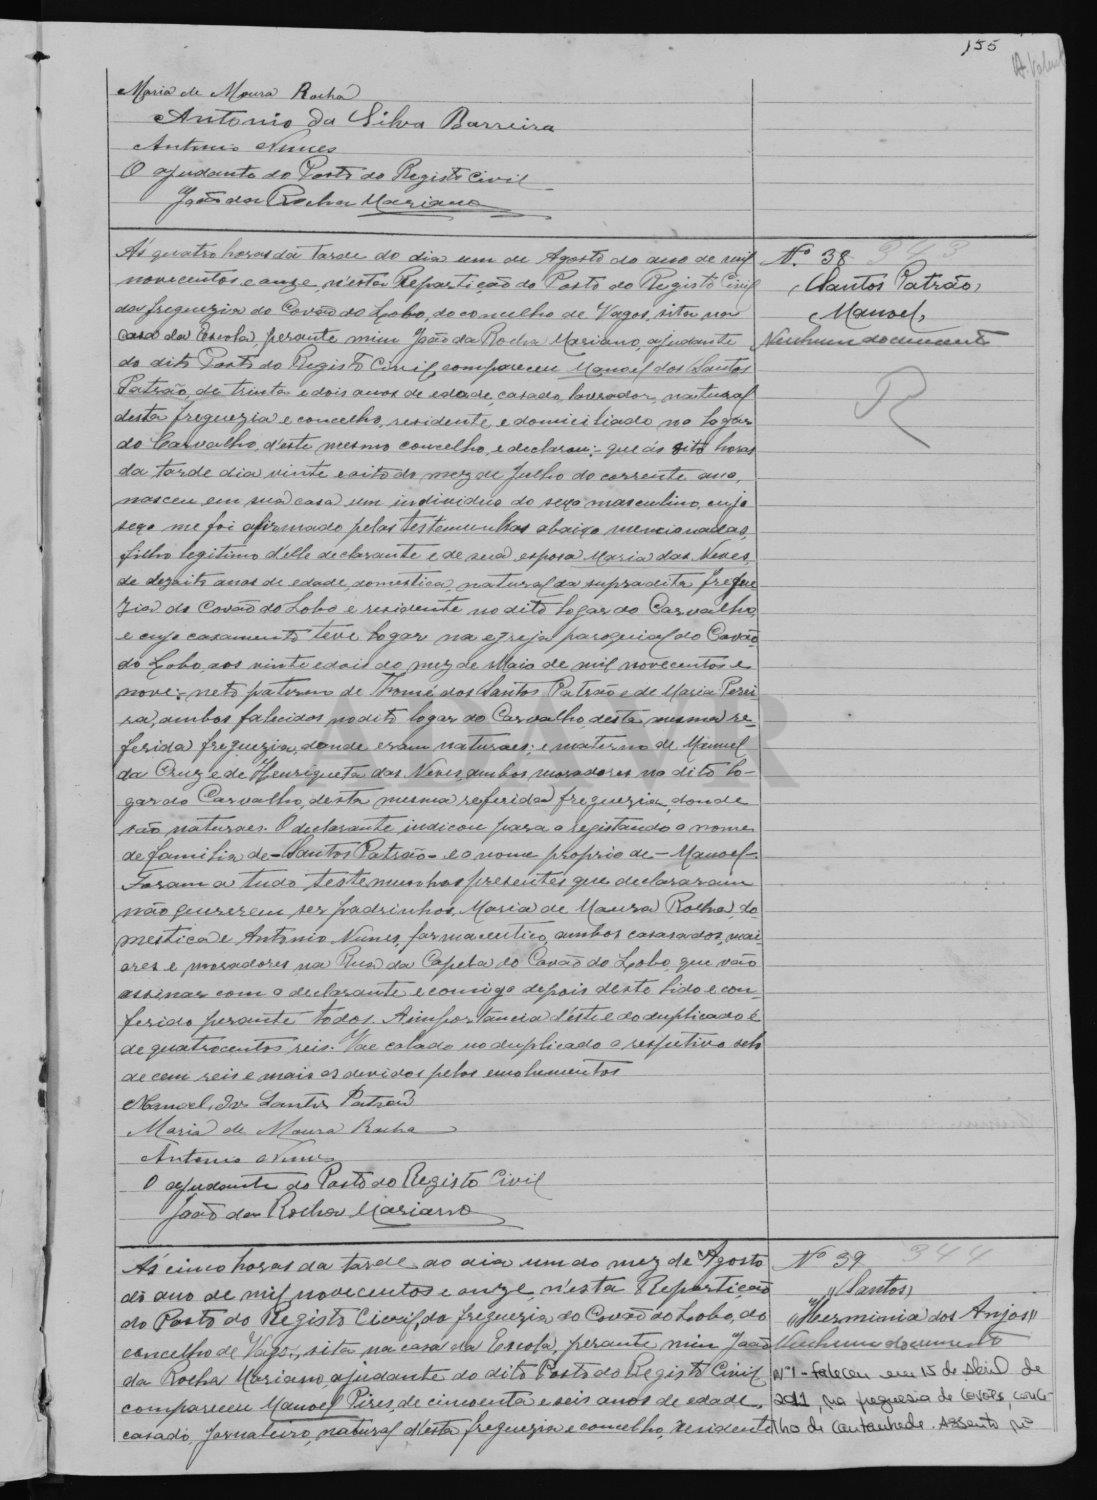 155
A. Valent
Maria de Moura Rocha
Antonio da Silva Barreira
Antonio Nunes
O ajudante do Posto do Registo Civil
João da Rocha Mariano
Nº 38 343
(Santos Patrão)
Manoel,
Nenhum documento
R
Ás quatro horas da tarde do dia um de Agosto do ano de mil
novecentos e onze, n'esta Repartição do Posto do Registo Civil
da freguezia do Covão do Lobo, do concelho de Vagos, sita na
casa da Escola, perante mim João da Rocha Mariano, ajudante
do dito Posto do Registo Civil, compareceu Manoel dos Santos
Patrão, de trinta e dois anos de edade, casado, lavrador, natural
desta freguezia e concelho, residente e domiciliado no logar
do Carvalho, d'este mesmo concelho, e declarou: que ás oito horas
da tarde dia vinte e oito do mez de Julho do corrente ano,
nasceu em sua casa um individuo do sexo masculino, cujo
sexo me foi afirmado pelas testemunhas abaixo mencionadas,
filho legitimo d'elle declarante e de sua esposa Maria das Neves,
de dezoito anos de edade, domestica, natural da supradita fregue
zia do Covão do Lobo e residente no dito logar do Carvalho
e cujo casamento teve logar na egreja paroquial do Covão
do Lobo, aos vinte e dois do mez de Maio de mil novecentos e
nove: neto paterno de Thomé dos Santos Patrão e de Maria Perei
ra, ambos falecidos, no dito logar do Carvalho, desta mesma re-
ferida freguezia, donde eram naturaes; e materno de Manuel
da Cruz e de Henriqueta das Neves, ambos moradores no dito lo-
gar do Carvalho, desta mesma referida freguezia, donde
são naturaes. O declarante indicou para o registando o nome
de familia de - Santos Patrão - e o nome proprio de - Manoel -.
Foram a tudo testemunhas presentes que declararam
não quererem ser padrinhos, Maria de Moura Rocha, do-
mestica e Antonio Nunes, farmaceutico, ambos casasados, mai-
ores e moradores na Rua da Capela do Covão do Lobo, que vão
assinar com o declarante e comigo depois deste lido e con-
ferido perante todos. A importancia d'este e do duplicado é
de quatrocentos reis. Vae colado no duplicado o respetivo selo
de cem reis e mais os devidos pelos emolumentos
Manoel dos Santos Patrão
Maria de Moura Rocha
Antonio Nunes
O ajudante do Posto do Registo Civil
João da Rocha Mariano
ADAVR
Nº 39 344
(Santos)
"Herminia dos Anjos"
Nenhum documento
Nº1 - Faleceu em 15 de Abril de
2011, na freguesia de Covões, conce-
lho de Cantanhede. Assento nº
Ás cinco horas da tarde do dia um do mez de Agosto
do ano de mil novecentos e onze, n'esta Repartição
do Posto do Registo Civil, da freguezia do Covão do Lobo, do
concelho de Vagos, sita na casa da Escola, perante mim João
da Rocha Mariano, ajudante do dito Posto do Registo Civil
compareceu Manoel Pires, de cincoenta e seis anos de edade,
casado, jornaleiro, natural d'esta freguezia e concelho, residente